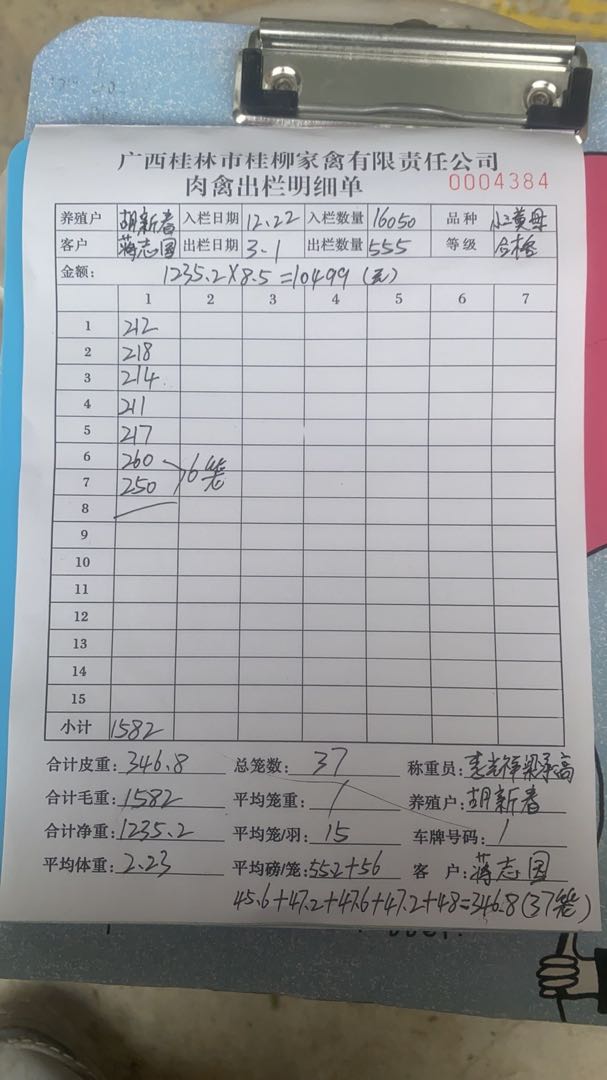 广西桂林市桂柳家禽有限责任公司
肉禽出栏明细单 0004384
养殖户 胡新春 入栏日期 12.22 入栏数量 16050 品种 小三黄母
客户 蒋志国 出栏日期 3.1 出栏数量 555 等级 合格
金额: 1235.2×8.5=10499(元)
1 2 3 4 5 6 7
1 212
2 218
3 214
4 211
5 217
6 260
7 250 6笼
8
9
10
11
12
13
14
15
小计 1582
合计皮重: 346.8 总笼数: 37 称重员:
合计毛重: 1582 平均笼重: / 养殖户: 胡新春
合计净重: 1235.2 平均笼/羽: 15 车牌号码: /
平均体重: 2.23 平均磅/笼: 55.2+56 客户: 蒋志国
45.6+47.2+47.6+47.2+48=346.8(37笼)